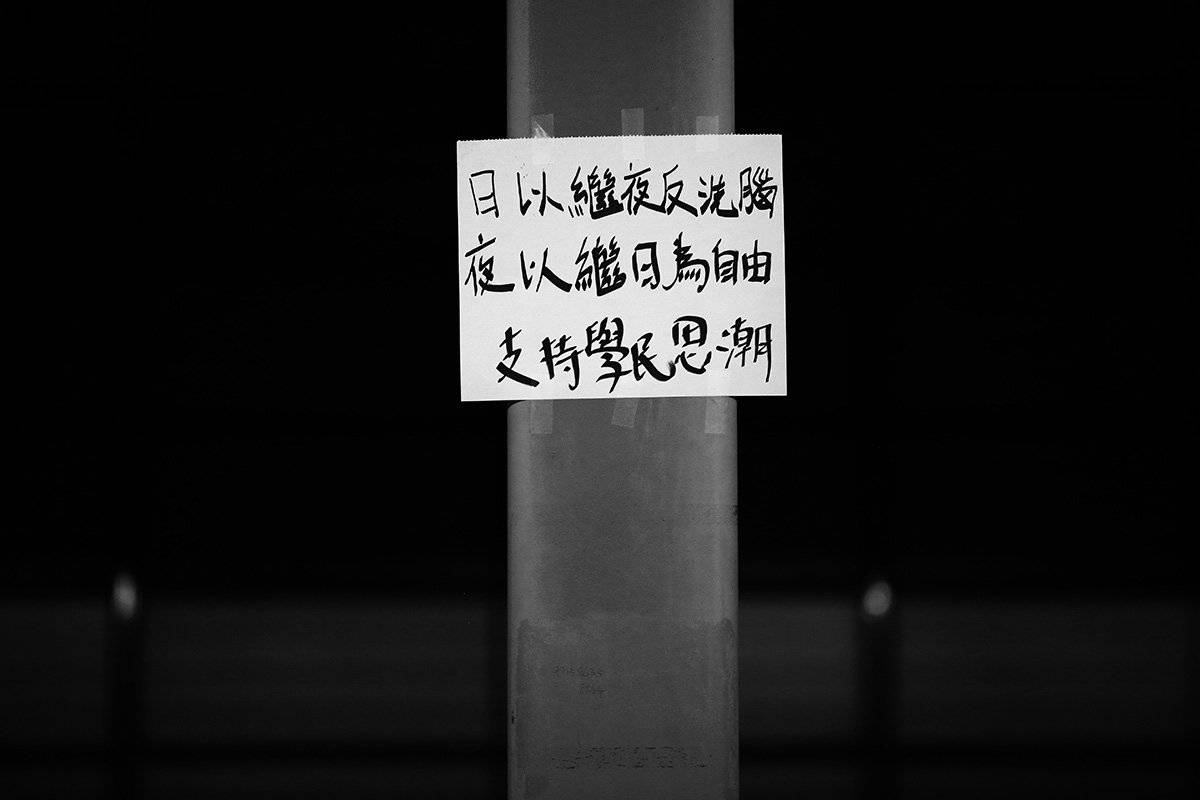 日以繼夜反洗腦
夜以繼日為自由
支持學民思潮